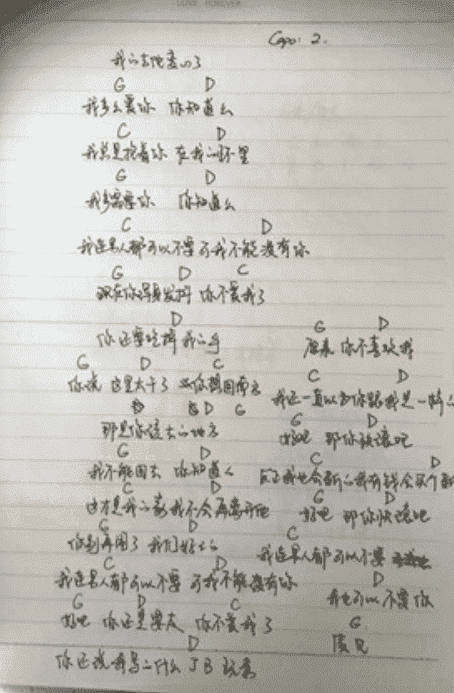 LOVE FOREVER
Capo: 2.
我的吉他变心了
G D
我多么爱你 你知道么
C D
我总是抱着你 在我的怀里
G D
我多需要你 你知道么
C D
我连男人都可以不要 可我不能没有你
G D C
现在你浑身发抖 你不爱我了
D
你还要吃掉我的手
G D C
你说 这里太干了 你想回南方
D G
那是你该去的地方
G D
我不能回去 你知道么
C D
这才是我的家 我不会再离开他
G D
你别再闹了 我们好好的
C D
我连男人都可以不要 可我不能没有你
G D C
好吧 你还是要走 你不爱我了
D
你还说我写的什么JB玩意
G D
原来 你不喜欢我
C D
我还一直以为你跟我是一样的
G D
好吧 那你快滚吧
C D
我也会 我有钱会买个
G D
好吧 那你快滚吧
C
我连男人都可以不要
D
我也可以不要你
G
再见